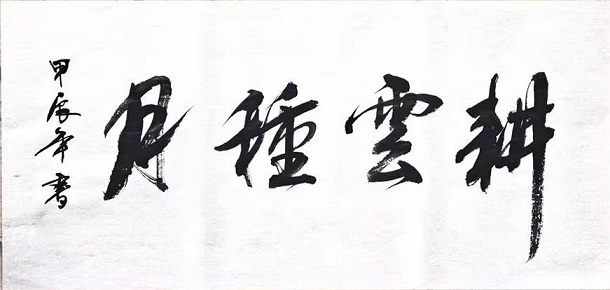 耕雲種月
甲辰年書